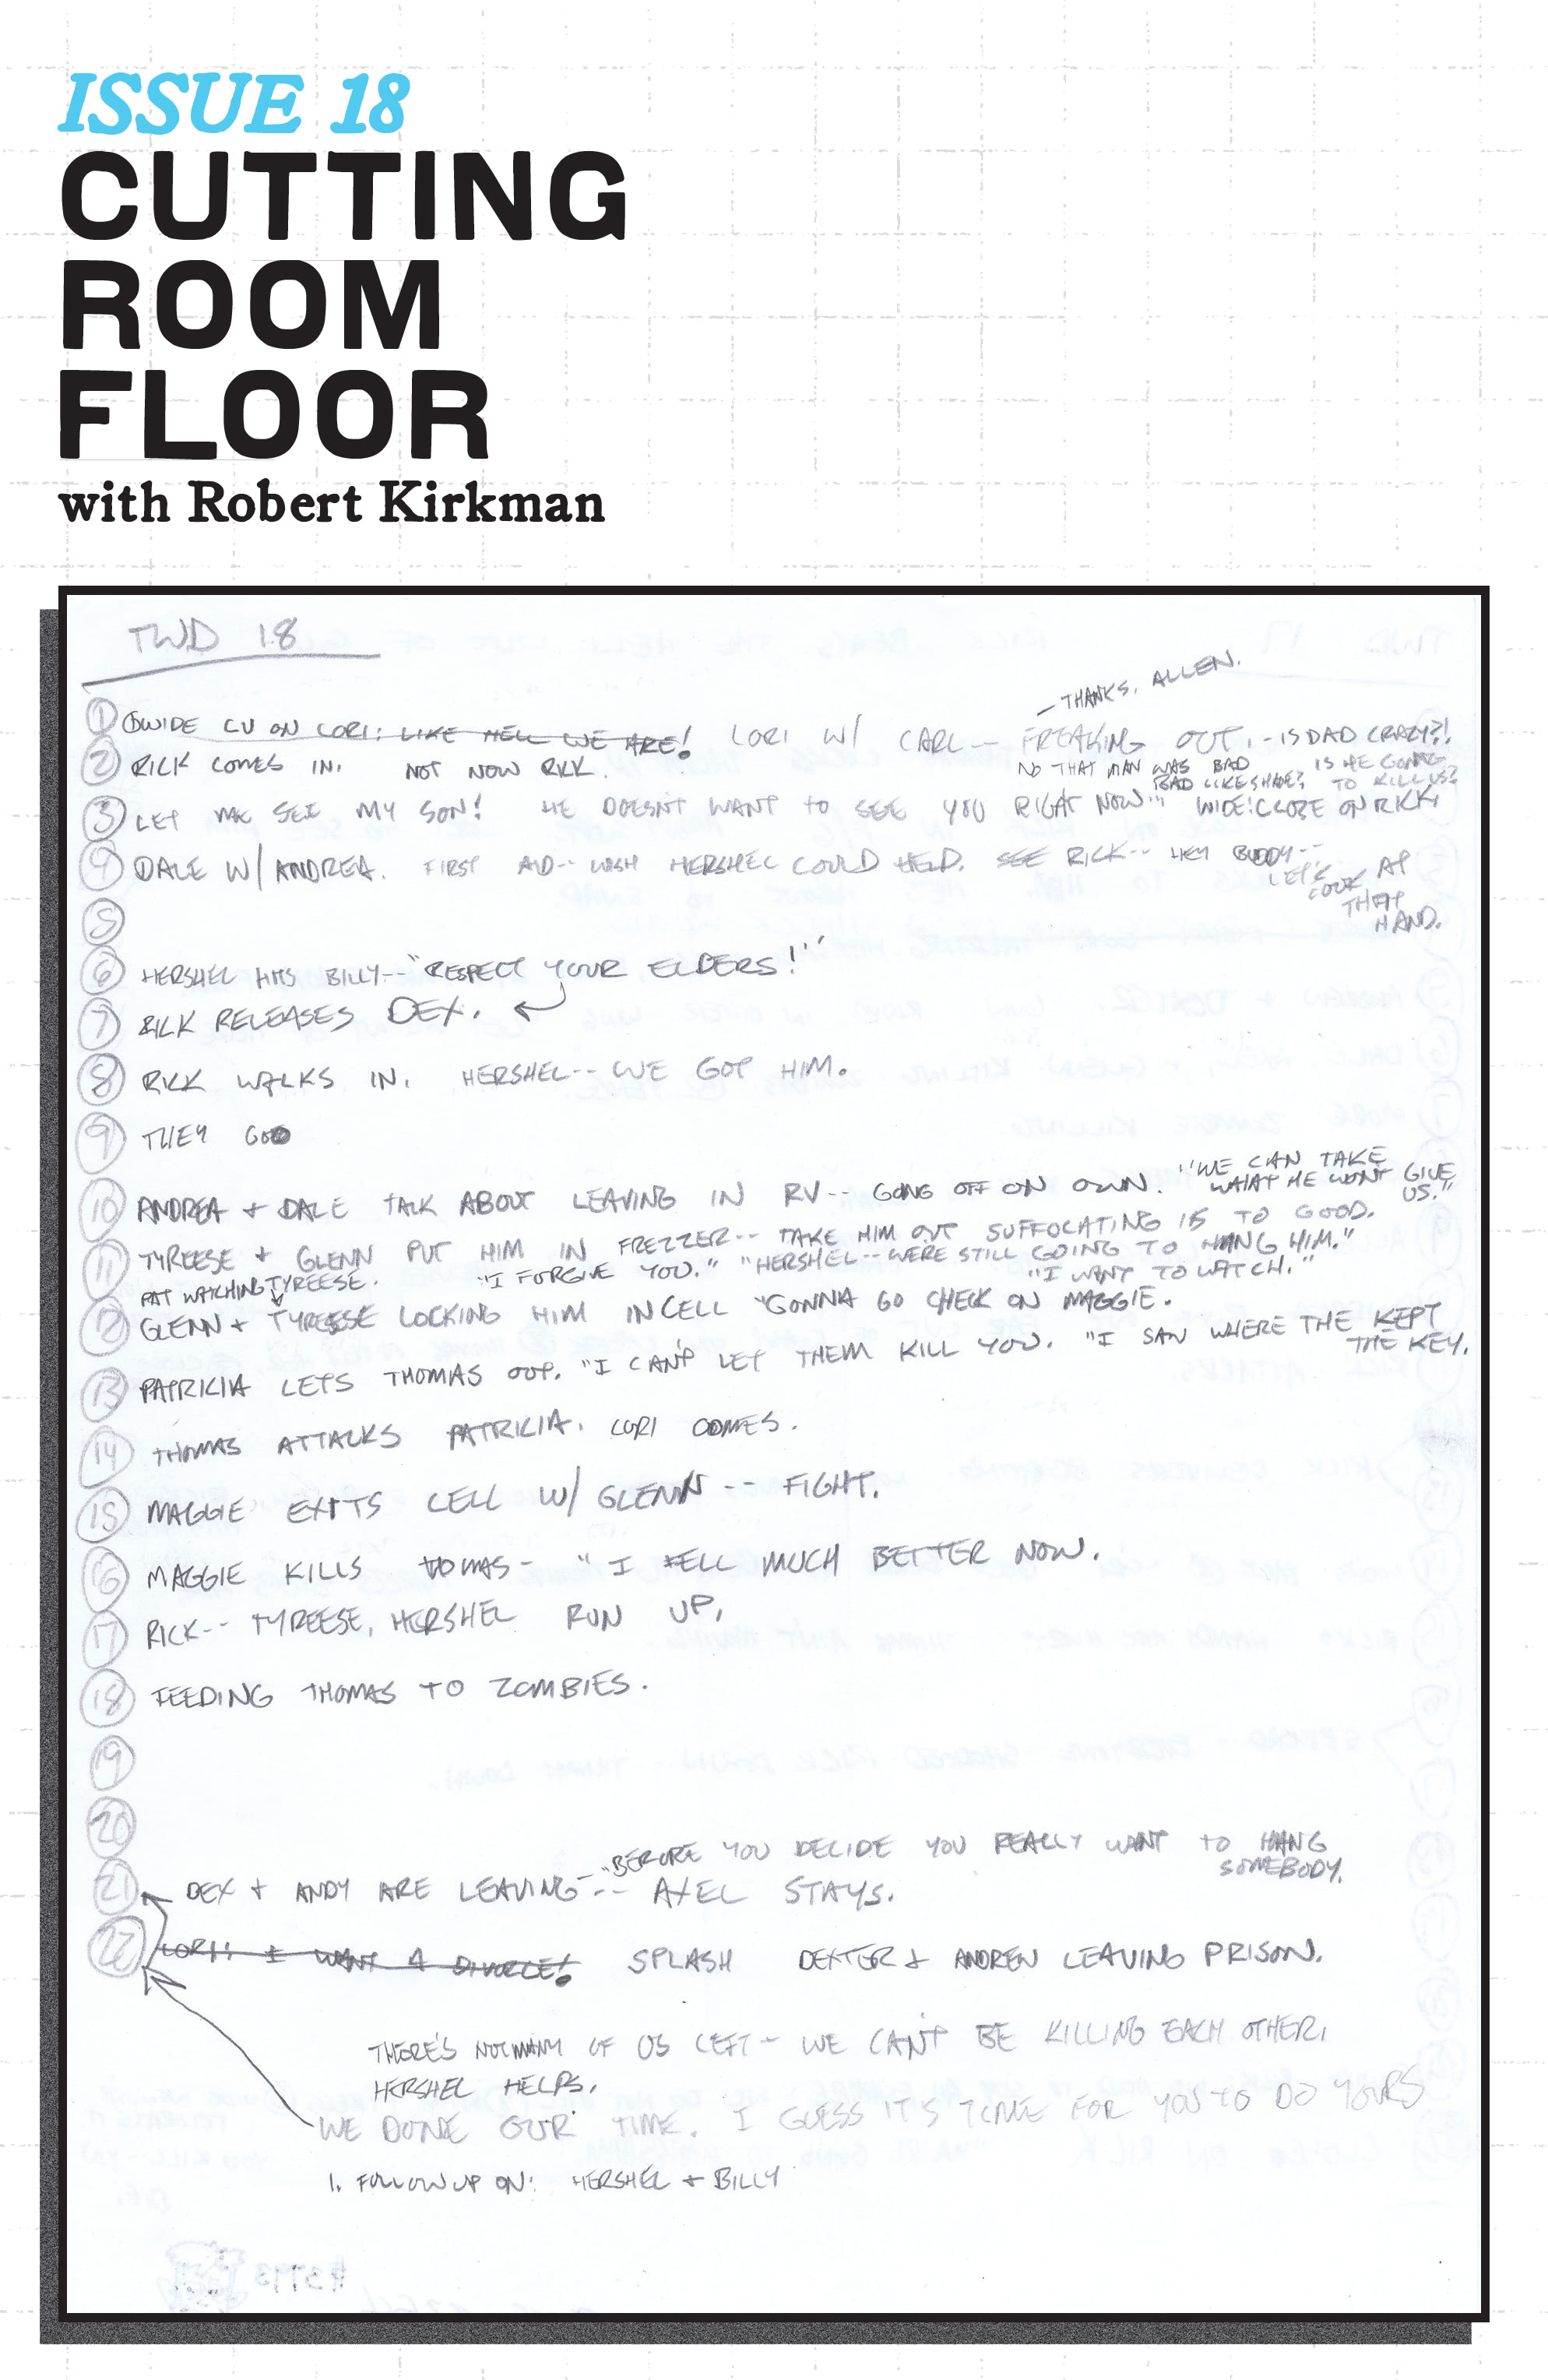 ISSUE 18
CUTTING
ROOM
FLOOR
with Robert Kirkman
TWD 18
— THANKS, ALLEN.
1 WIDE CU ON LORI: LIKE HELL WE ARE! LORI W/ CARL-- FREAKING OUT. - IS DAD CRAZY?!
2 RICK COMES IN. NOT NOW RICK. NO THAT MAN WAS BAD IS HE GOING
BAD LIKE SHANE? TO KILL US?
3 LET ME SEE MY SON! HE DOESN'T WANT TO SEE YOU RIGHT NOW" WIDE: CLOSE ON RICK
4 DALE W/ ANDREA. FIRST AID-- WISH HERSHEL COULD HELP. SEE RICK-- HEY BUDDY--
LET'S
LOOK AT
THAT
HAND.
5
6 HERSHEL HITS BILLY-- "RESPECT YOUR ELDERS!"
7 RICK RELEASES DEX.
8 RICK WALKS IN. HERSHEL-- WE GOT HIM.
9 THEY GO
10 ANDREA + DALE TALK ABOUT LEAVING IN RV-- GOING OFF ON OWN. "WE CAN TAKE
WHAT HE WON'T GIVE
US."
11 TYREESE + GLENN PUT HIM IN FREZZER-- TAKE HIM OUT SUFFOCATING IS TO GOOD.
PAT WATCHING TYREESE. "I FORGIVE YOU." "HERSHEL-- WERE STILL GOING TO HANG HIM."
"I WANT TO WATCH."
12 GLENN + TYREESE LOCKING HIM IN CELL "GONNA GO CHECK ON MAGGIE.
13 PATRICIA LETS THOMAS OUT. "I CAN'T LET THEM KILL YOU. "I SAW WHERE THE KEPT
THE KEY.
14 THOMAS ATTACKS PATRICIA. LORI COMES.
15 MAGGIE EXITS CELL W/ GLENN -- FIGHT.
16 MAGGIE KILLS TOMAS - "I FELL MUCH BETTER NOW.
17 RICK-- TYREESE, HERSHEL RUN UP.
18 FEEDING THOMAS TO ZOMBIES.
19
20
"BEFORE YOU DECIDE YOU REALLY WANT TO HANG
SOMEBODY.
21 DEX + ANDY ARE LEAVING -- AXEL STAYS.
22 LORI: I WANT A DIVORCE! SPLASH DEXTER + ANDREW LEAVING PRISON.
THERE'S NOT MANY OF US LEFT - WE CAN'T BE KILLING EACH OTHER.
HERSHEL HELPS.
WE DONE OUR TIME. I GUESS IT'S TIME FOR YOU TO DO YOURS
1. FOLLOW UP ON: HERSHEL + BILLY